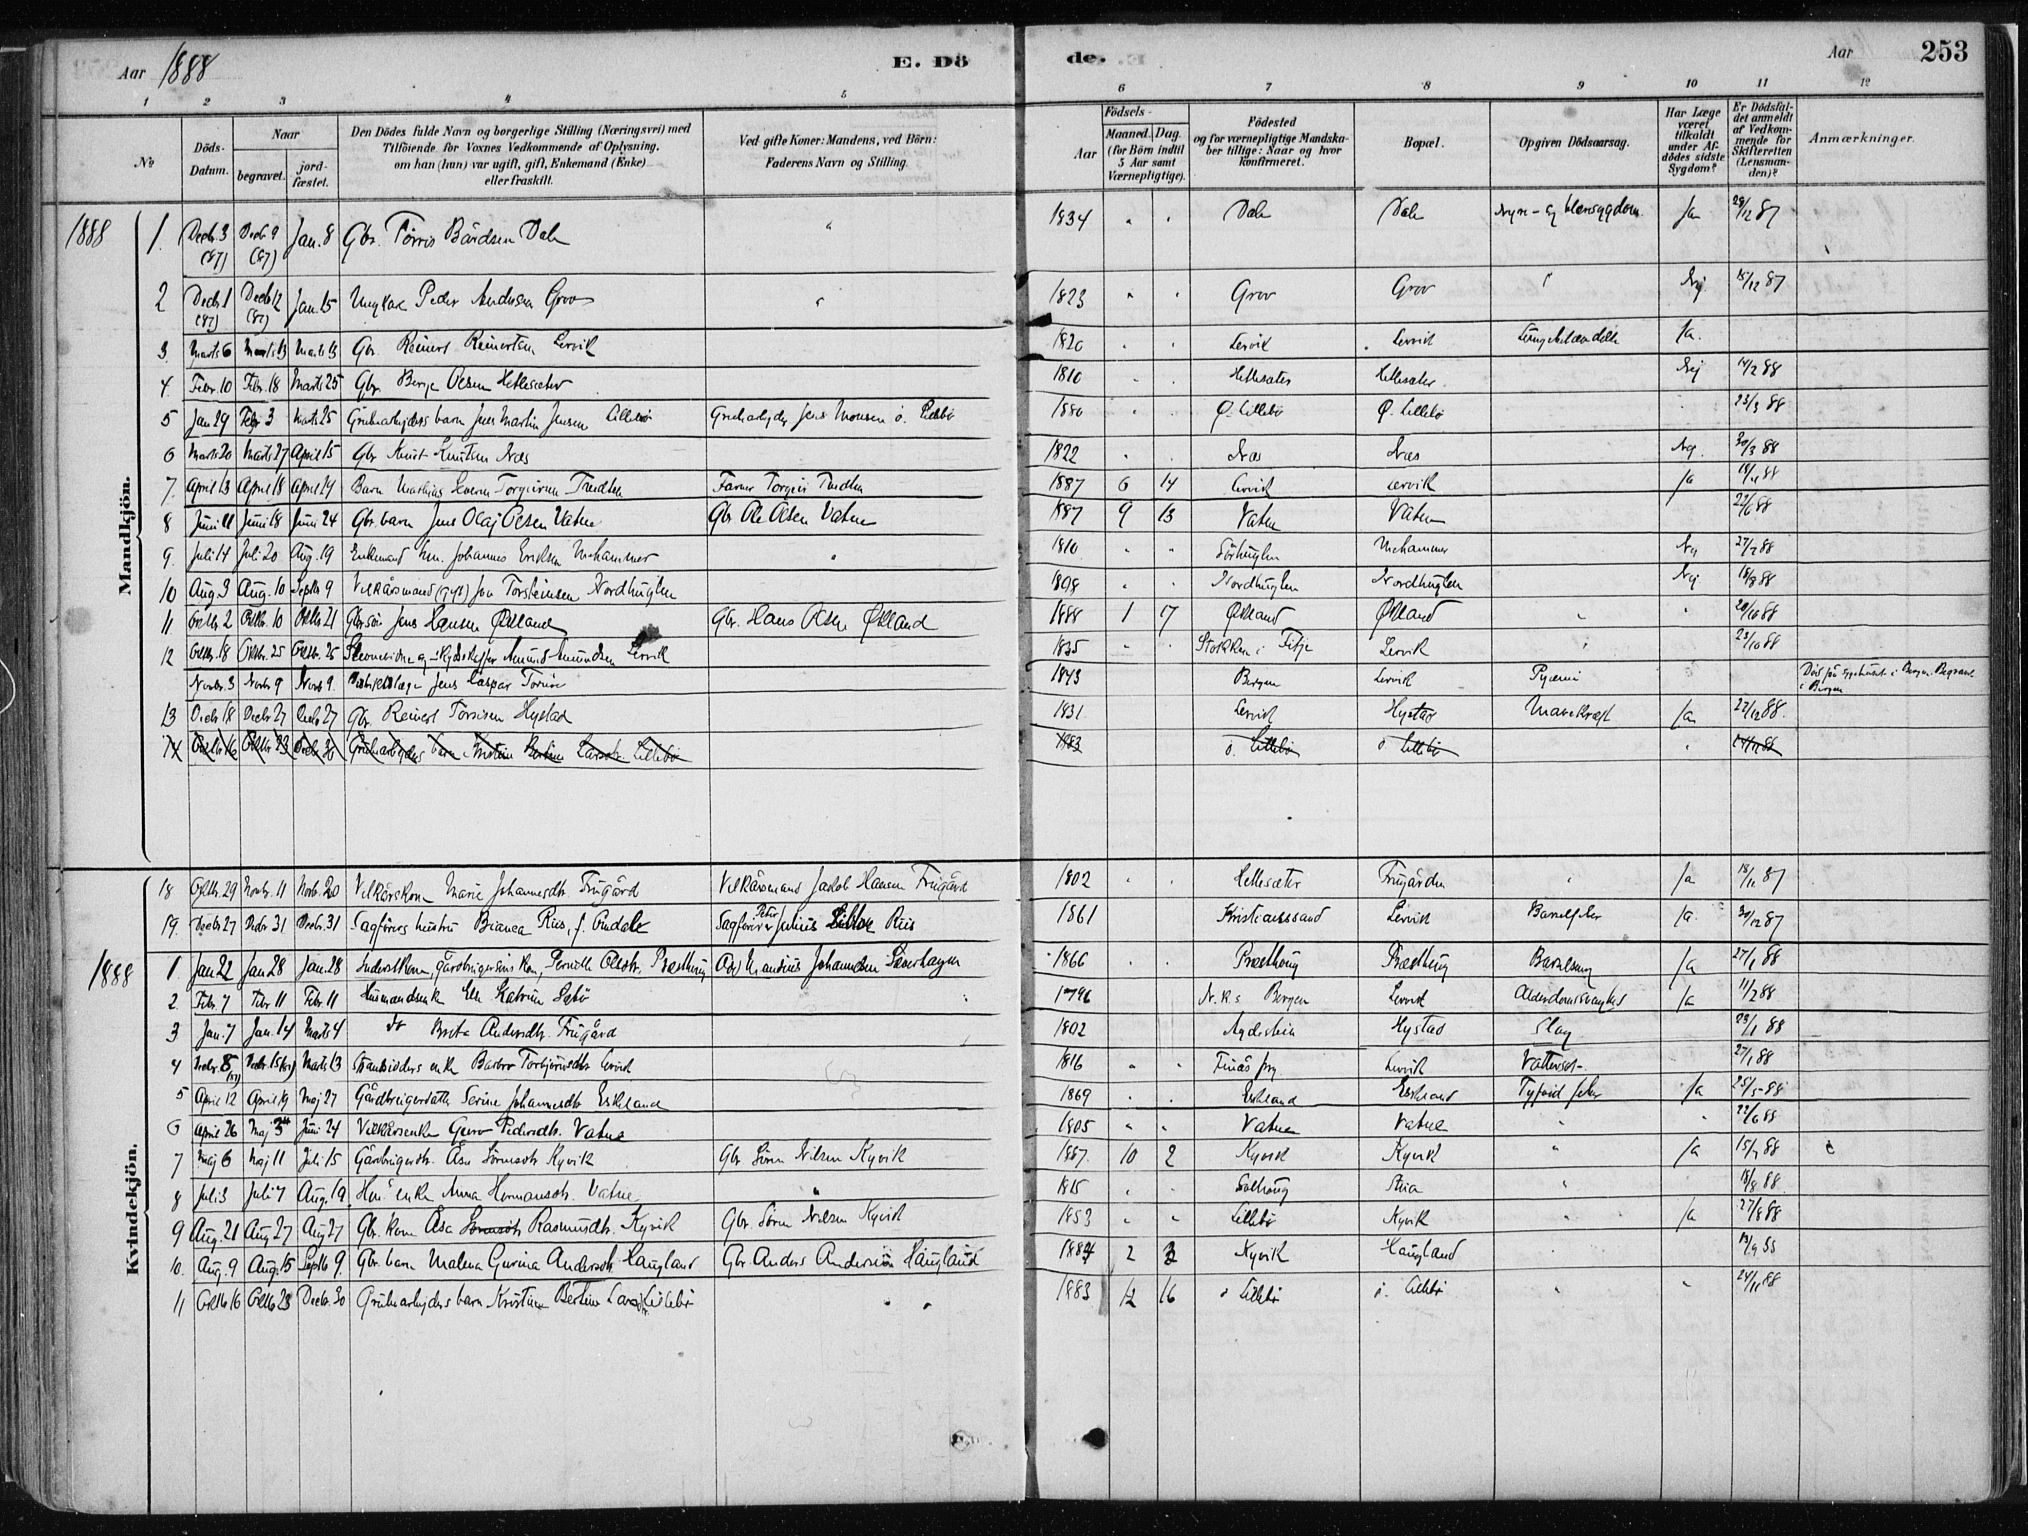 Aar 1888 E. Döde. Aar 253
1 2 3 4 5 6 7 8 9 10 11 12
No Döds-Datum. Naar begravet. jordfæstet. Den Dödes fulde Navn og borgerlige Stilling (Næringsvei) med Tilföiende for Voxnes Vedkommende af Oplysning, om han (hun) var ugift, gift, Enkemand (Enke) eller fraskilt. Ved gifte Koner: Mandens, ved Börn: Faderens Navn og Stilling. Aar Födsels- Maaned. Dag. (for Börn indtil 5 Aar samt Værnepligtige). Födested og for værnepligtige Mandskaber tillige: Naar og hvor konfirmeret. Bopæl. Opgiven Dödsaarsag. Har Læge været tilkaldt under Afdödes sidste Sygdom? Er Dödsfaldet anmeldt af Vedkommende for Skifteretten (Lensmanden)? Anmærkninger.
Mandkjön.
1888 1. Decb. 3 (87) Decb 9 (87) Jan. 8 Gbr. Tørris Bårdsen Dale " 1834 " " Dale Dale Nyre- og blæresygdom Ja 28/12 87
2 Decb 1 (87) Decb 12 (87) Jan. 15 Ungkar Peder Andersen Grov " 1823 " " Grov Grov " Nej 15/12 87
3. Marts 6 Marts 13 Marts 13 Gbr. Reinert Reinertsen Lervik 1820 " " Lervik Lervik Ja.
4. Febr. 10 Febr. 18 Marts 25 Gbr. Berge Olsen Hettesæter 1810 " " Hettesæter Hettesæter Nej 14/2 88
5 Jan 29 Febr 3 Marts 25 Grubearbejders barn Jens Martin Jensen Lillebø Grubearbejder Jens Monsen ø. Lillebø 1880 " " Ø. Lillebø Ø. Lillebø 23/3 88
6 Marts 20 Marts 27 April 15 Gbr Knut Knutsen Næs 1822 " " Næs Næs Nej 30/3 88
7. April 13 April 18 April 19 Barn Mathias Severin Torgeirsen Tredten Farver Torgeir Tredten 1887 6 14 Lervik Lervik Ja 18/4 88
8 Juni 11 Juni 18 Juni 24 Gbr. barn Jens Olaj Olsen Vatne Gbr Ole Olsen Vatne 1887 9 13 Vatne Vatne 22/6 88
9. Juli 14 Juli 20 Aug. 19 Enkemand Johannes Eriksen Mehammer " 1810 " " Sørhuglen Mehammer Nej 27/7 88
10 Aug. 3 Aug. 10 Septb 9 Vilkårsmand (gift) Jon Torsteinsen Nordhuglen 1808 " " Nordhuglen Nordhuglen Nej 18/8 88
11 Octbr 2 Octb. 10 Octbr 21 Gbr. søn Jens Hansen Økland Gbr. Hans Olsen Økland 1888 1 17 Økland Økland " " 20/10 88
12 Octbr. 18 Octbr. 25 Octbr. 25 Amund Amundsen Lervik 1835 " " Stokken i Fitje Lervik " 23/10 88
Novbr. 3 Novbr 9 Novb 9. Distriktslæge Jens Caspar Torum 1843 Bergen Lervik Pyæmi Død på sygehuset i Bergen. Begravet i Bergen
13 Decb 18 Decbr 27 Decb 27 Gbr. Reinert Torrisen Hystad 1831. Lervik Hystad Mavekræft Ja 27/12 88.
14 Octbr 16 Octbr 23 Decbr 30 Grubearbejders barn Kristine Bertine Larsdtr. Lillebø 1883 ø. Lillebø ø. Lillebø " 24/11 88
Kvindekjön.
18 Octbr. 29 Novbr. 11 Novb. 20 Vilkårskone Marie Johannesdtr. Frugård Vilkårsmand Jakob Hansen Frugård 1802 " " Hettesæter Frugården " Ja 18/11 87
19. Decbr 27 Decbr 31 Decbr. 31 Sagførers hustru Bianca Riis, f. Omdal Sagfører Peter Julius Riis 1861 Kristianssand Lervik Barselfeber Ja. 30/12 87
1888 1. Jan 22 Jan 28 Jan. 28 Inderstkone, Gårdbrugerens kone, Pernille Olsdtr. Præsthoug Johannesen 1866 " " Præsthoug Præsthoug Barselseng Ja 27/1 88
2 Febr. 7 Febr 11 Febr 11 Husmandsenke Elle Katrine Sæbø 1796 N.Ks Bergen Lervik Alderdomssvaghed Ja 11/2 88
3 Jan. 7 Jan. 14 Marts 4 do Brita Andersdtr. Frugård 1802 Hystad Slag 23/1 88
4 Decbr. 8 (87) Decbr. 15 (87) Marts 13 Strandsidders enke Barbro Torbjørnsdtr Lervik 1816 " " Finås prg Lervik Vattersot 27/1 88
5 April 12 April 19 Maj 27 Gårdbrugerdatter Serine Johannesdtr Eskeland 1869 " " Eskeland Eskeland Tyfoid feber Ja 25/5 88
6 April 26 Maj 3 Juni 24 Vilkårsenke Guro Pedersdtr. Vatne 1805 " " Vatne Vatne " " 22/6 88
7 Maj 6 Maj 11 Juli 15 Gårdbrugerdtr. Åsa Sørensdtr Kyvik Gbr Søren Nilsen Kyvik 1887. 10 2 Kyvik Kyvik " Ja 15/7 88
8 Juli 3 Juli 7 Aug. 19 enke Anna Hermansdtr. Vatne " 1815 " " Solhoug 18/8 88
9 Aug. 21 Aug 27 Aug 27 Gbr. kone Åsa Sørensdtr Rasmusdtr. Kyvik Gbr. Søren Nilsen Kyvik 1853 " " Lillebø Kyvik " Ja 27/8 88
10. Aug. 9 Aug. 15 Septb 9. Gbr. barn Malena Gurina Andersdtr. Haugland Gbr. Anders Andersen Haugland 1884 2 3 Kyvik Haugland 13/9 88
11 Octb 16 Octb 23 Decbr. 30 Grubearbejders barn Kristine Bertine Larsdtr. Lillebø " " 1883 12 16 ø Lillebø ø. Lillebø " " 24/11 88